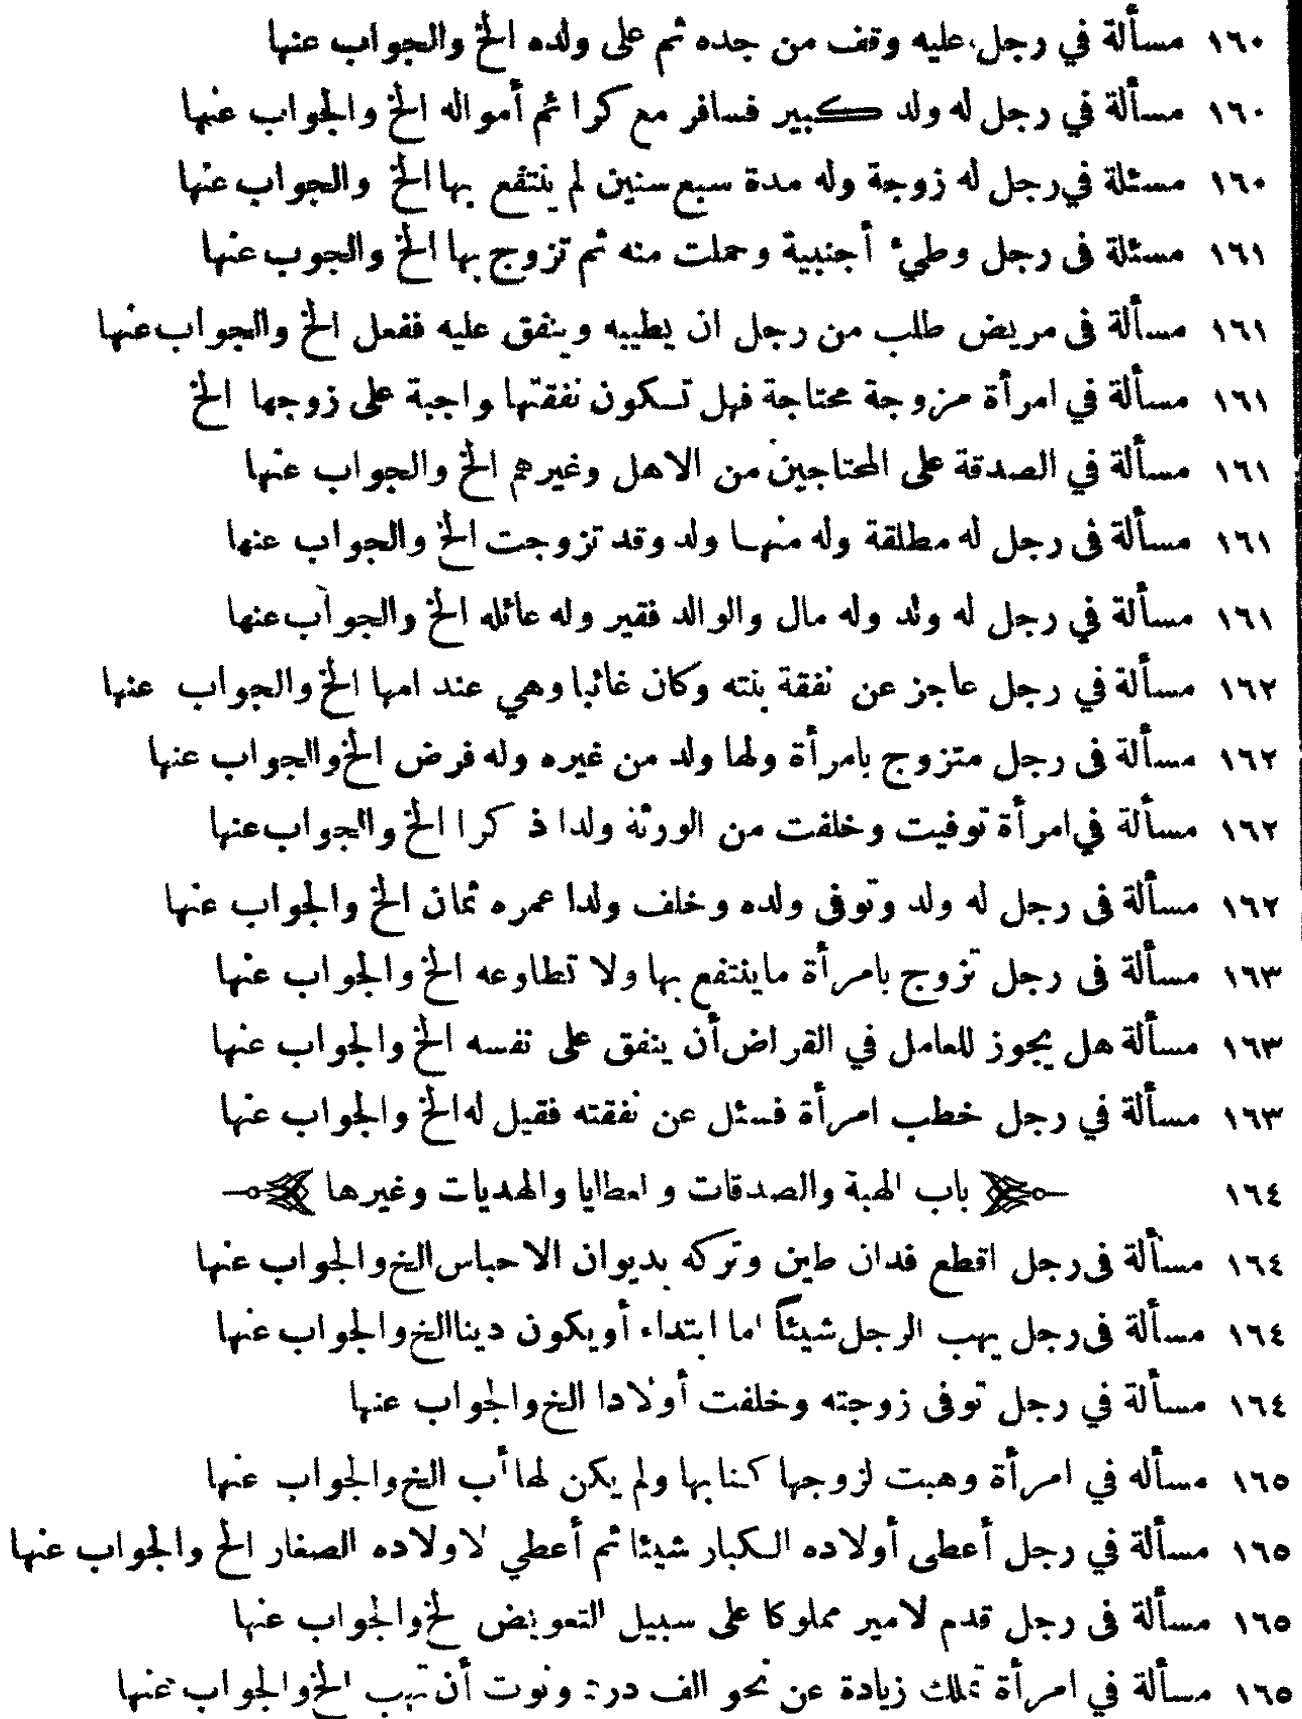 ١٦٠ مسألة في رجل عليه وقف من جده ثم على ولده الخ والجواب عنها
١٦٠ مسألة في رجل له ولد كبير فسافر مع كرا ثم أمواله الخ والجواب عنها
١٦٠ مسئلة في رجل له زوجة وله مدة سبع سنين لم ينتفع بها الخ والجواب عنها
١٦١ مسئلة فى رجل وطيء أجنبية وحملت منه ثم تزوج بها الخ والجوب عنها
١٦١ مسألة فى مريض طلب من رجل ان يطببه وينفق عليه ففعل الخ والجواب عنها
١٦١ مسألة في امرأة مزوجة محتاجة فهل تسكون نفقتها واجبة على زوجها الخ
١٦١ مسألة في الصدقة على المحتاجين من الاهل وغيرهم الخ والجواب عنها
١٦١ مسألة فى رجل له مطلقة وله منها ولد وقد تزوجت الخ والجواب عنها
١٦١ مسألة في رجل له ولد وله مال والوالد فقير وله عائله الخ والجواب عنها
١٦٢ مسألة في رجل عاجز عن نفقة بنته وكان غائبا وهي عند امها الخ والجواب عنها
١٦٢ مسألة فى رجل متزوج بامرأة ولها ولد من غيره وله فرض الخ والجواب عنها
١٦٢ مسألة في امرأة توفيت وخلفت من الورثة ولدا ذكرا الخ والجواب عنها
١٦٢ مسألة فى رجل له ولد وتوفى ولده وخلف ولدا عمره ثمان الخ والجواب عنها
١٦٣ مسألة فى رجل تزوج بامرأة ماينتفع بها ولا تطاوعه الخ والجواب عنها
١٦٣ مسألة هل يجوز للعامل في القراض أن ينفق على نفسه الخ والجواب عنها
١٦٣ مسألة في رجل خطب امرأة فسئل عن نفقته فقيل له الخ والجواب عنها
١٦٤ باب الهبة والصدقات و العطايا والهديات وغيرها
١٦٤ مسألة فى رجل اقطع فدان طين وتركه بديوان الاحباس الخ والجواب عنها
١٦٤ مسألة فى رجل يهب الرجل شيئاً اما ابتداء أويكون دينا الخ والجواب عنها
١٦٤ مسألة في رجل توفى زوجته وخلفت أولادا الخ والجواب عنها
١٦٥ مسأله في امرأة وهبت لزوجها كتابها ولم يكن لها أب الخ والجواب عنها
١٦٥ مسألة في رجل أعطى أولاده الكبار شيئا ثم أعطي لاولاده الصغار الخ والجواب عنها
١٦٥ مسألة فى رجل قدم لامير مملوكا على سبيل التعويض لخ والجواب عنها
١٦٥ مسألة في امرأة تملك زيادة عن نحو الف ونوت أن تهب الخ والجواب عنها